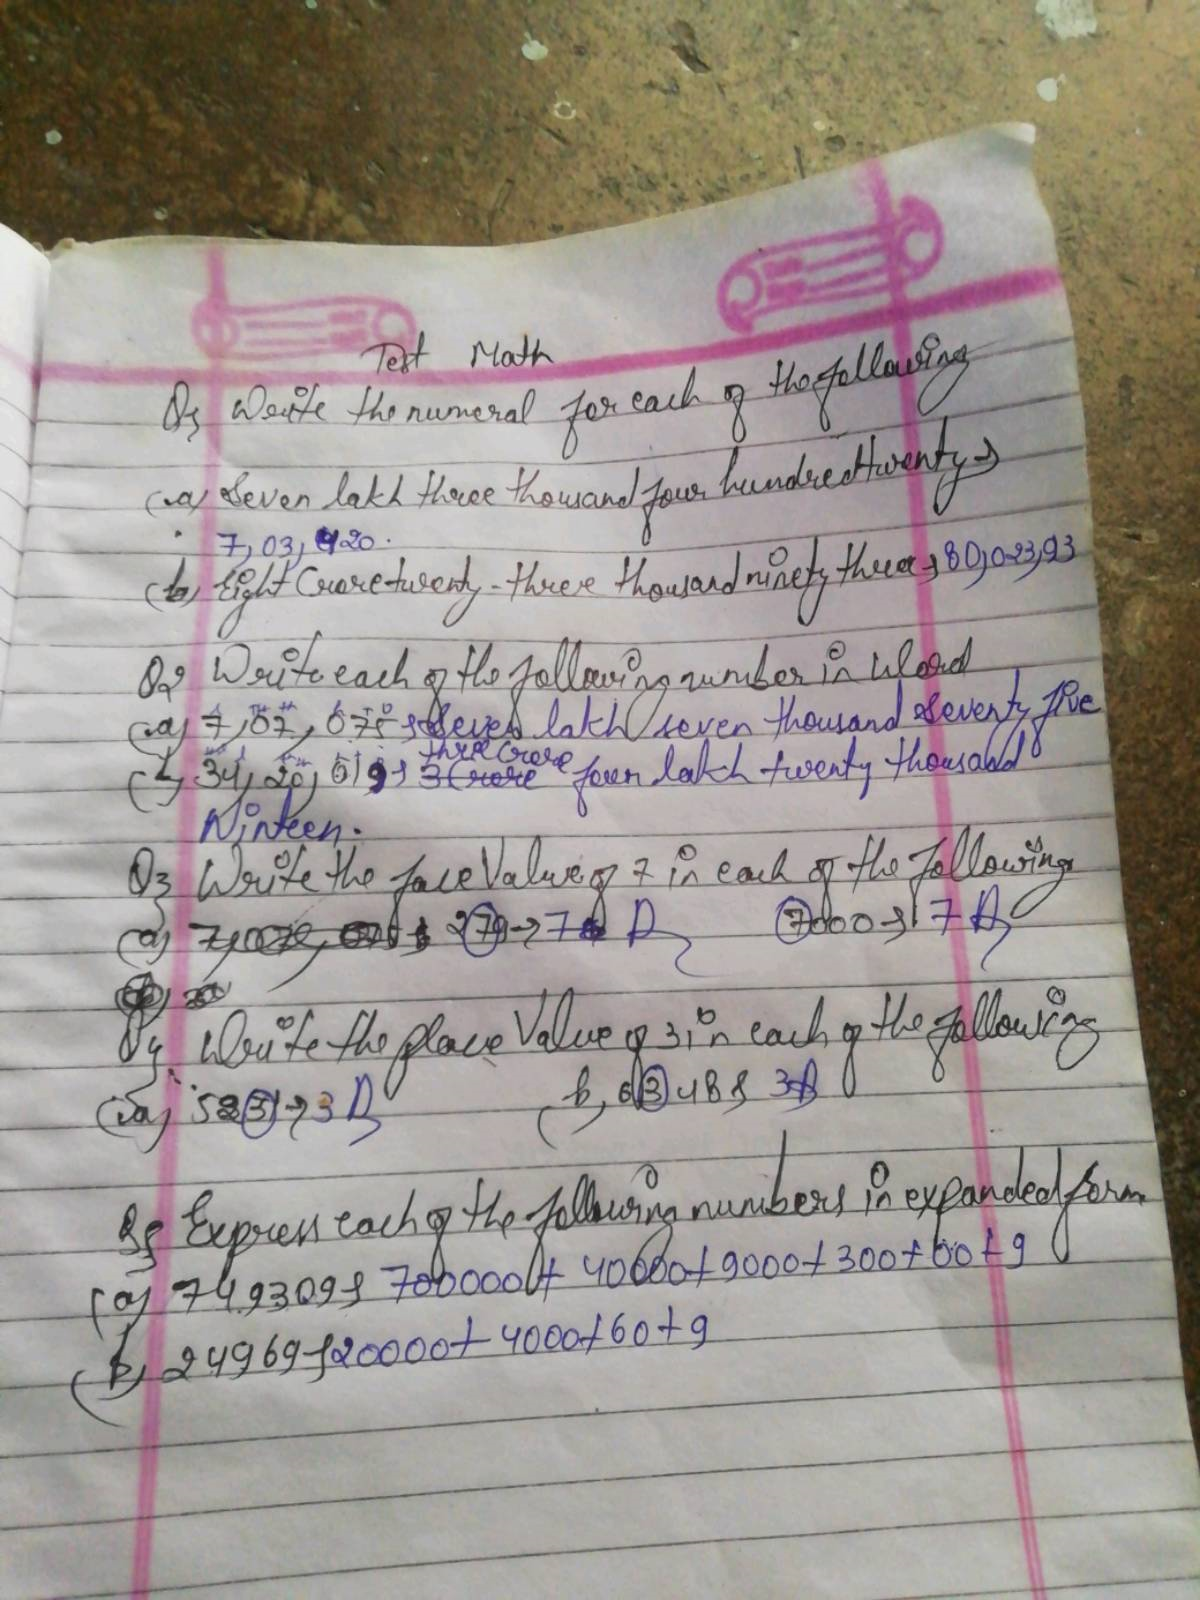 Test Math
Q1 Write the numeral for each of the following
(a) Seven lakh three thousand four hundred twenty →
7,03,420.
(b) Eight Crore twenty-three thousand ninety three → 80,023,93
Q2 Write each of the following number in Word
(a) 7,07,075 → Seven lakh seven thousand Seventy five
three Crore
(b) 34,20,019 → 3 Crore four lakh twenty thousand
Ninteen.
Q3 Write the face Value of 7 in each of the following
(a) 279 → 7 A 7000 → 7 A
Q4 Write the place Value of 3 in each of the following
(a) 5231 → 3 A (b) 63481 3 A
Q5 Express each of the following numbers in expanded form
(a) 749309 → 700000+ 40000+9000+300+00+9
(b) 24969 → 20000+ 4000+60+9